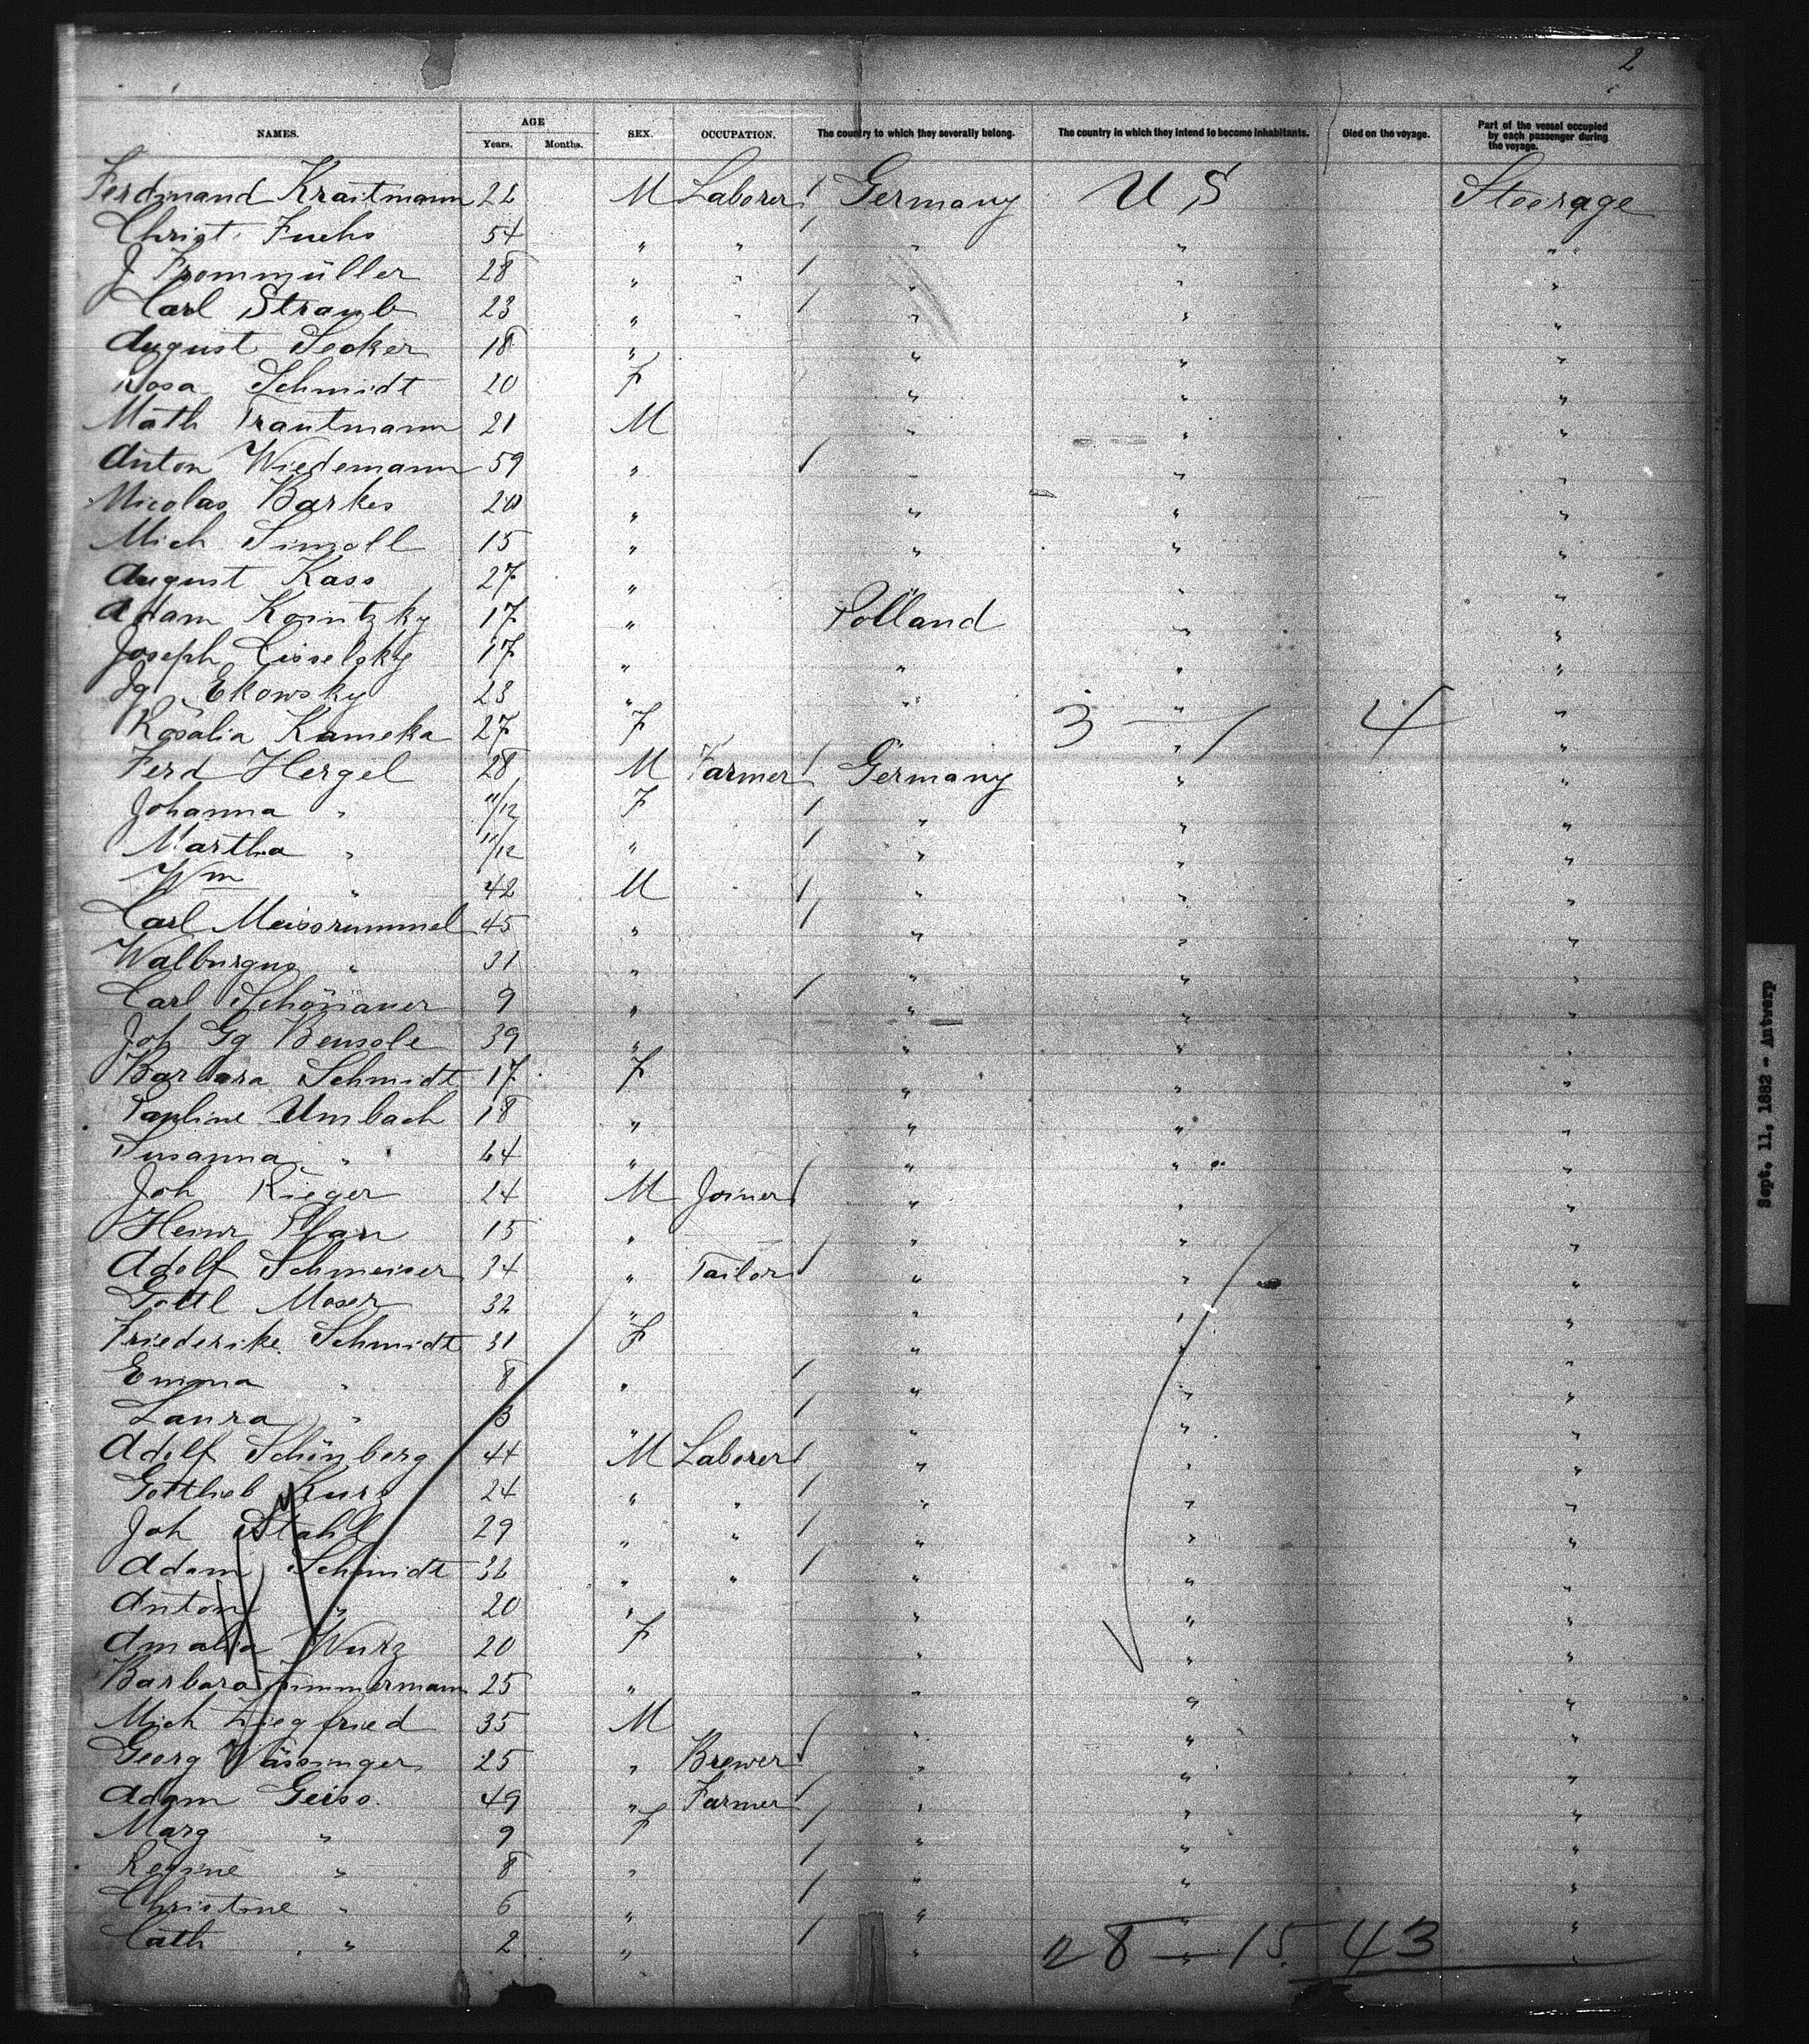 2
NAMES. AGE Years. Months. SEX. OCCUPATION. The country to which they severally belong. The country in which they intend to become inhabitants. Died on the voyage. Part of the vessel occupied by each passenger during the voyage.
Ferdinand Krautmann 22 M Laborer Germany U S Steerage
Christ. Fuchs 54 " " " " "
J Frommüller 28 " " " " "
Carl Straub 23 " " " " "
August Secker 18 " " " "
Rosa Schmidt 20 F " " "
Math Trautmann 21 M " " "
Anton Wiedemann 59 " " " "
Nicolas Barkes 20 " " " "
Mich Simoll 15 " " " "
August Kass 27 " " " "
Adam Kointzky 17 " Polland " "
Joseph Cisselsky 17 " " " "
Ig Ekowsky 23 " " " "
Rosalia Kameka 27 F " 3 — 1 4 "
Ferd Hergel 28 M Farmer Germany " "
Johanna " 11/12 F " " "
Martha " 11/12 " " " "
Wm " 42 M " " "
Carl Meissrummel 45 " " " "
Walburgus " 31 " " " "
Carl Schönauer 9 " " " "
Joh Gg Bensele 39 " " " "
Barbara Schmidt 17 F " " "
Pauline Umbach 18 " " " "
Susanna " 64 " " " "
Joh Rieger 24 M Joiner " " "
Heinr Pfan 15 " " " "
Adolf Schmeiser 34 " Tailor " " "
Gottl Moser 32 " " " "
Friederike Schmidt 31 F " " "
Emma " 8 " " " "
Laura " 3 " " " "
Adolf Schönberg 44 M Laborer " " "
Gottlieb Kurz 24 " " " " "
Joh Stahl 29 " " " " "
Adam Schmidt 32 " " " " "
Anton " 20 " " " "
Amalia Wurz 20 F " " "
Barbara Zimmermann 25 " " " "
Mich Ziegfried 35 M " " "
Georg Wässinger 25 " Brewer " " "
Adam Geiss. 49 " Farmer " " "
Marg " 9 F " " "
Regine " 8 " " " "
Christine " 6 " " " "
Cath " 2 " " 28 — 15 43 "
Sept. 11, 1882 - Antwerp